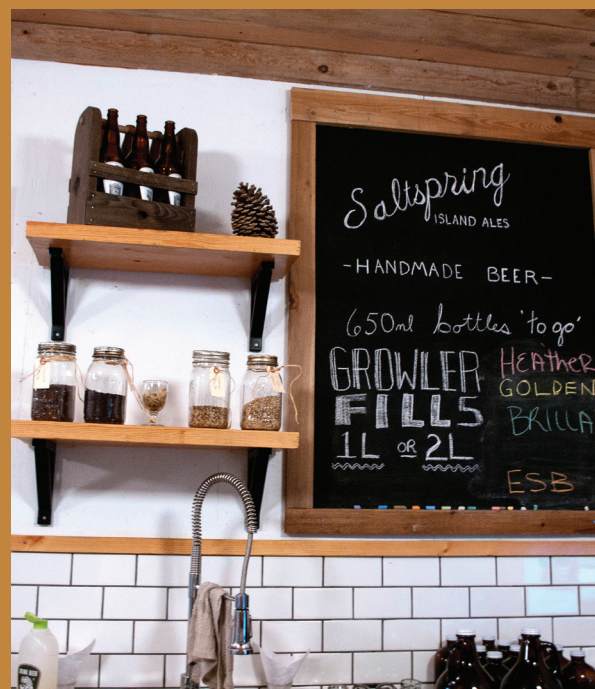 Saltspring
ISLAND ALES
-HANDMADE BEER-
650ml bottles 'to go'
GROWLER
FILLS
1L OR 2L
HEATHER
GOLDEN
BRILLA
ESB